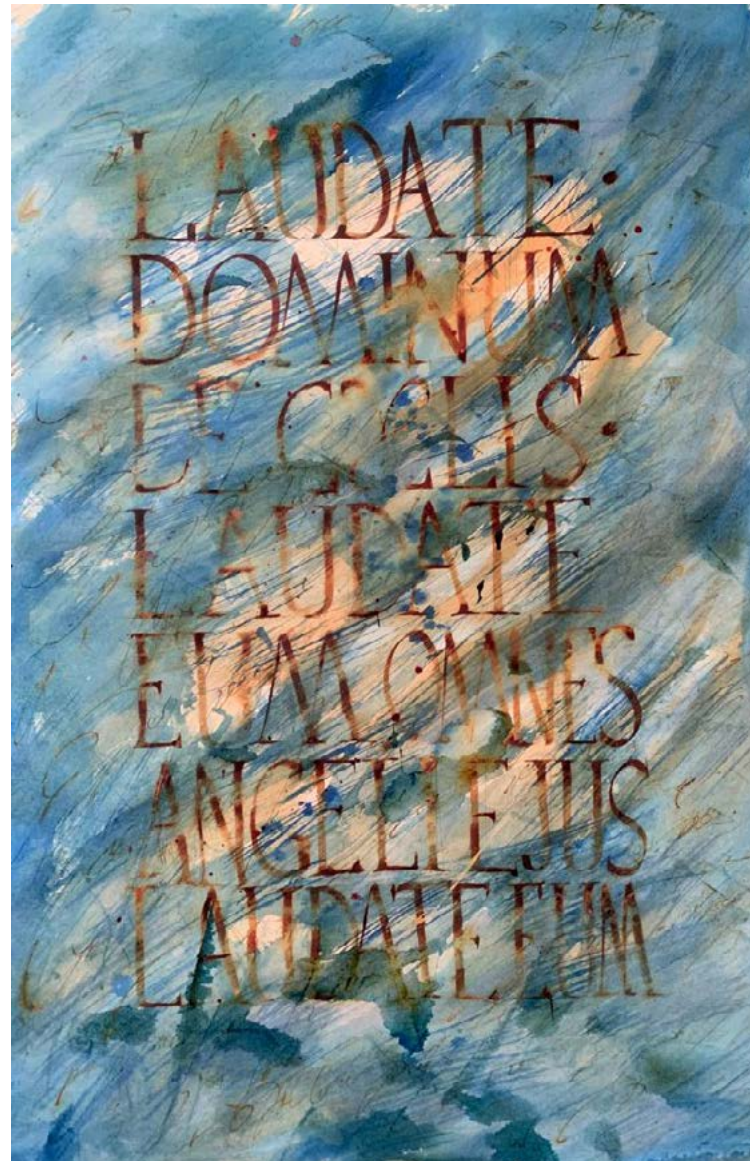 LAUDATE
DOMINUM
DE CŒLIS
LAUDATE
EUM OMNES
ANGELI EJUS
LAUDATE EUM